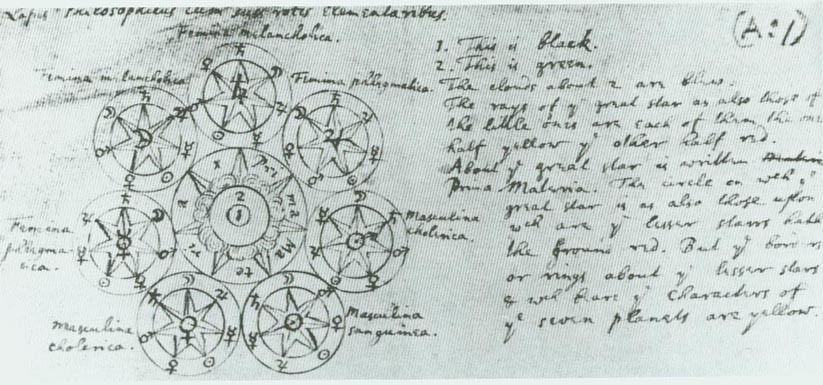 Lapis Philosophicus cum suis rotis Elementaribus.
(A:1)
Femina melancholica.
Femina melancholica
Femina phlegmatica.
Masculina
cholerica.
Femina
phlegma-
tica.
Masculina
sanguinea.
masculina
cholerica.
Pri
ma
Ma
te
ri
a
1
2
1. This is black.
2. This is green.
The clouds about 2 are blew.
The rays of yͤ great star as also those of
the little ones are each of them the one
half yellow yͤ other half red.
About yͤ great star is written
Prima Materia. The circle on wch yͤ
great star is as also those upon
wch are yͤ lesser starrs hath
the ground red. But yͤ borders
or rings about yͤ lesser stars
& wch beare yͤ characters of
yͤ seven planets are yellow.